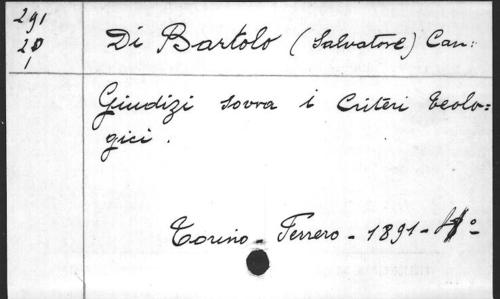 291
20
1
Di Bartolo (Salvatore) Can:
Giudizi sovra i Criteri teolo=
gici.
Torino - Ferrero - 1891 -